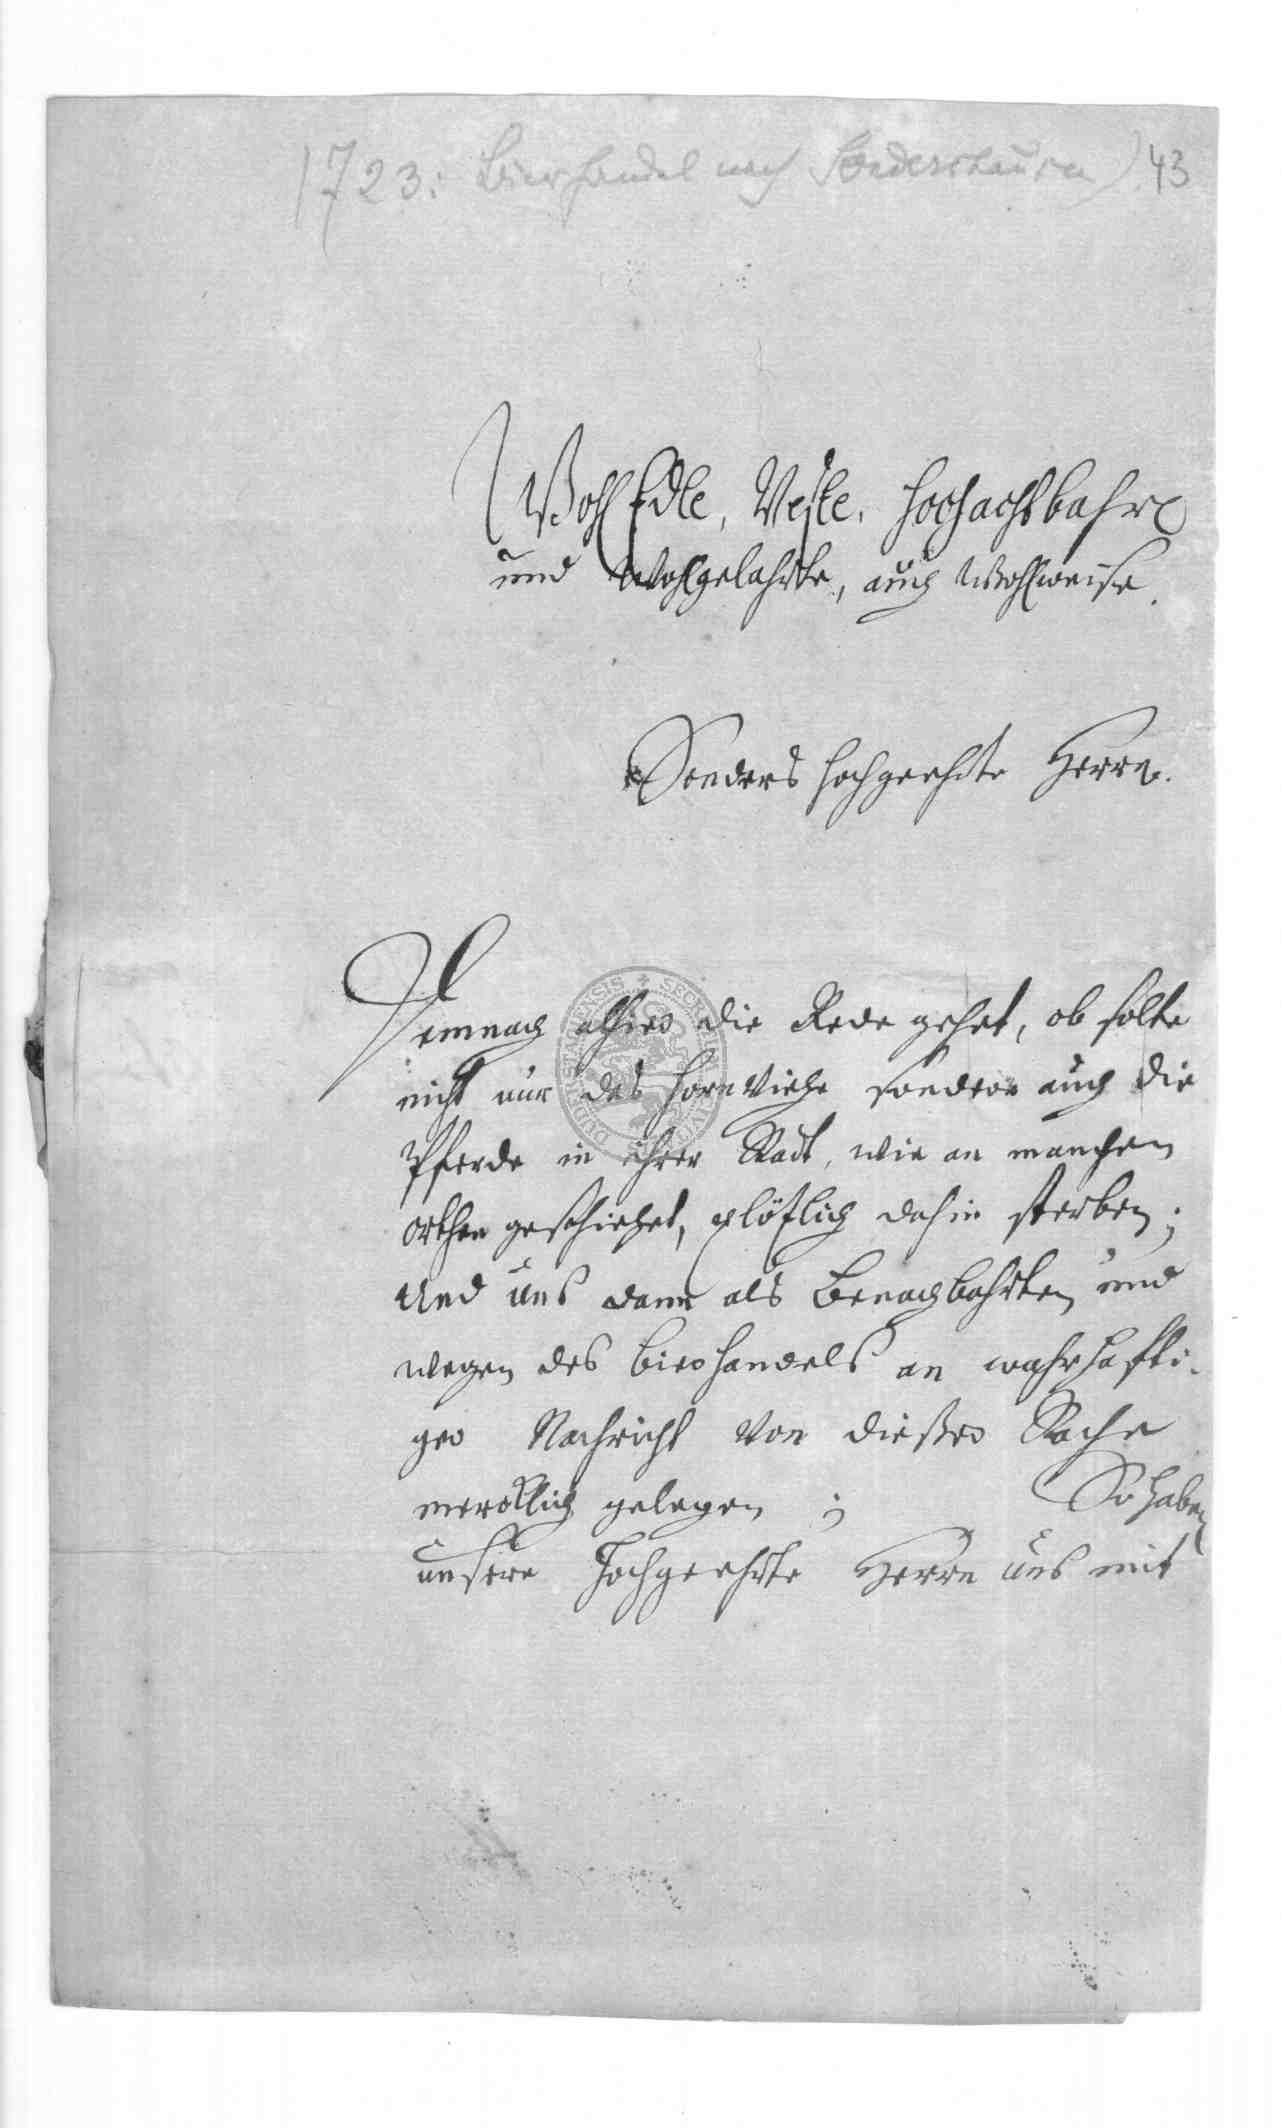 1723: Bierhandel nach Sondershausen) 43
WohlEdle, Veste, Hochachtbahre
und Wohlgelahrte, auch Wohlweise.
Besonders hochgeehrte Herren.
Demnach alhier die Rede gehet, ob solte
nicht nur das HornViehe sondern auch die
Pferde in ihrer Stadt, wie an manchen
orthen geschiehet, plötzlich dahin sterben;
Und uns dann als Benachbahrten und
wegen des bierhandels an wahrhaffti-
ger Nachricht von dießer Sache
mercklich gelegen; So haben
unsere Hochgeehrte Herrn uns mit